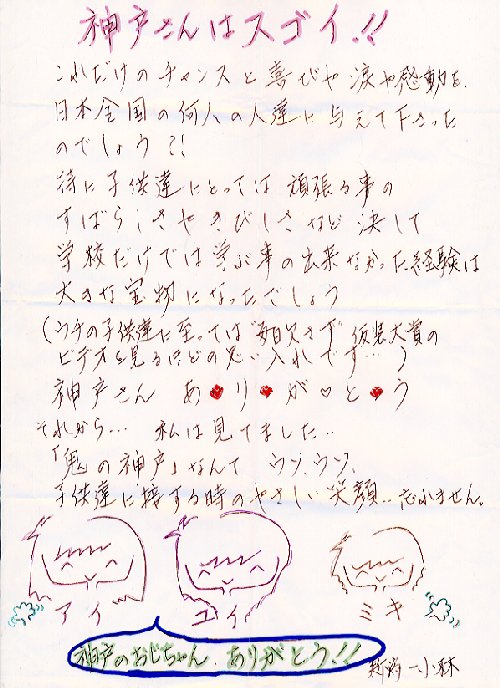 神戸さんはスゴイ!!
これだけのチャンスと喜びや涙や感動を、
日本全国の何人の人達に与えて下さった
のでしょう?!
特に子供達にとっては 頑張る事の
すばらしさやきびしさなど 決して
学校だけでは学ぶ事の出来なかった経験は
大きな宝物になったでしょう
(ウチの子供達に至っては"毎日欠さず"仮装大賞の
ビデオを見るほどの思い入れです…)
神戸さん あ♥り♥が♡と♥う
それから… 私は見てました…
「鬼の神戸」なんて ウソ、ウソ、
子供達に接する時のやさしい笑顔‥忘れません。
アイ ユイ ミキ
神戸のおじちゃん ありがとう!!
小林